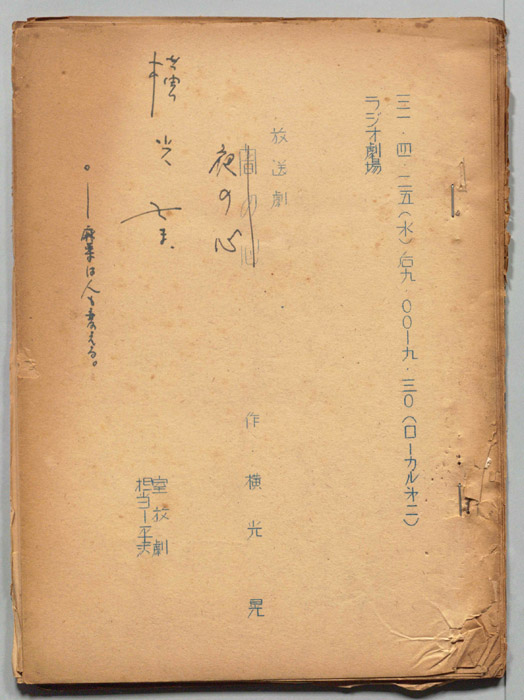 三一・四・二五(水)后九・〇〇ー九・三〇(ローカル第二)
ラジオ劇場
放送劇
闇の心
夜の心
作 横光 晃
横光
室放劇
担当ー
ー麻薬は人を変える。